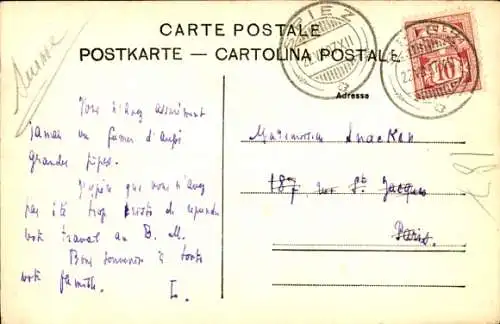 Suisse
CARTE POSTALE
POSTKARTE — CARTOLINA POSTALE
SPIEZ
Adresse
10
Vous n'avez assurément
jamais vu fumer d'aussi
grandes pipes.
J'espère que vous n'avez
pas été trop de reprendre
votre travail au B. M.
Bons souvenirs à toute
votre famille. I.
Mademoiselle
187, rue St. Jacques
Paris.